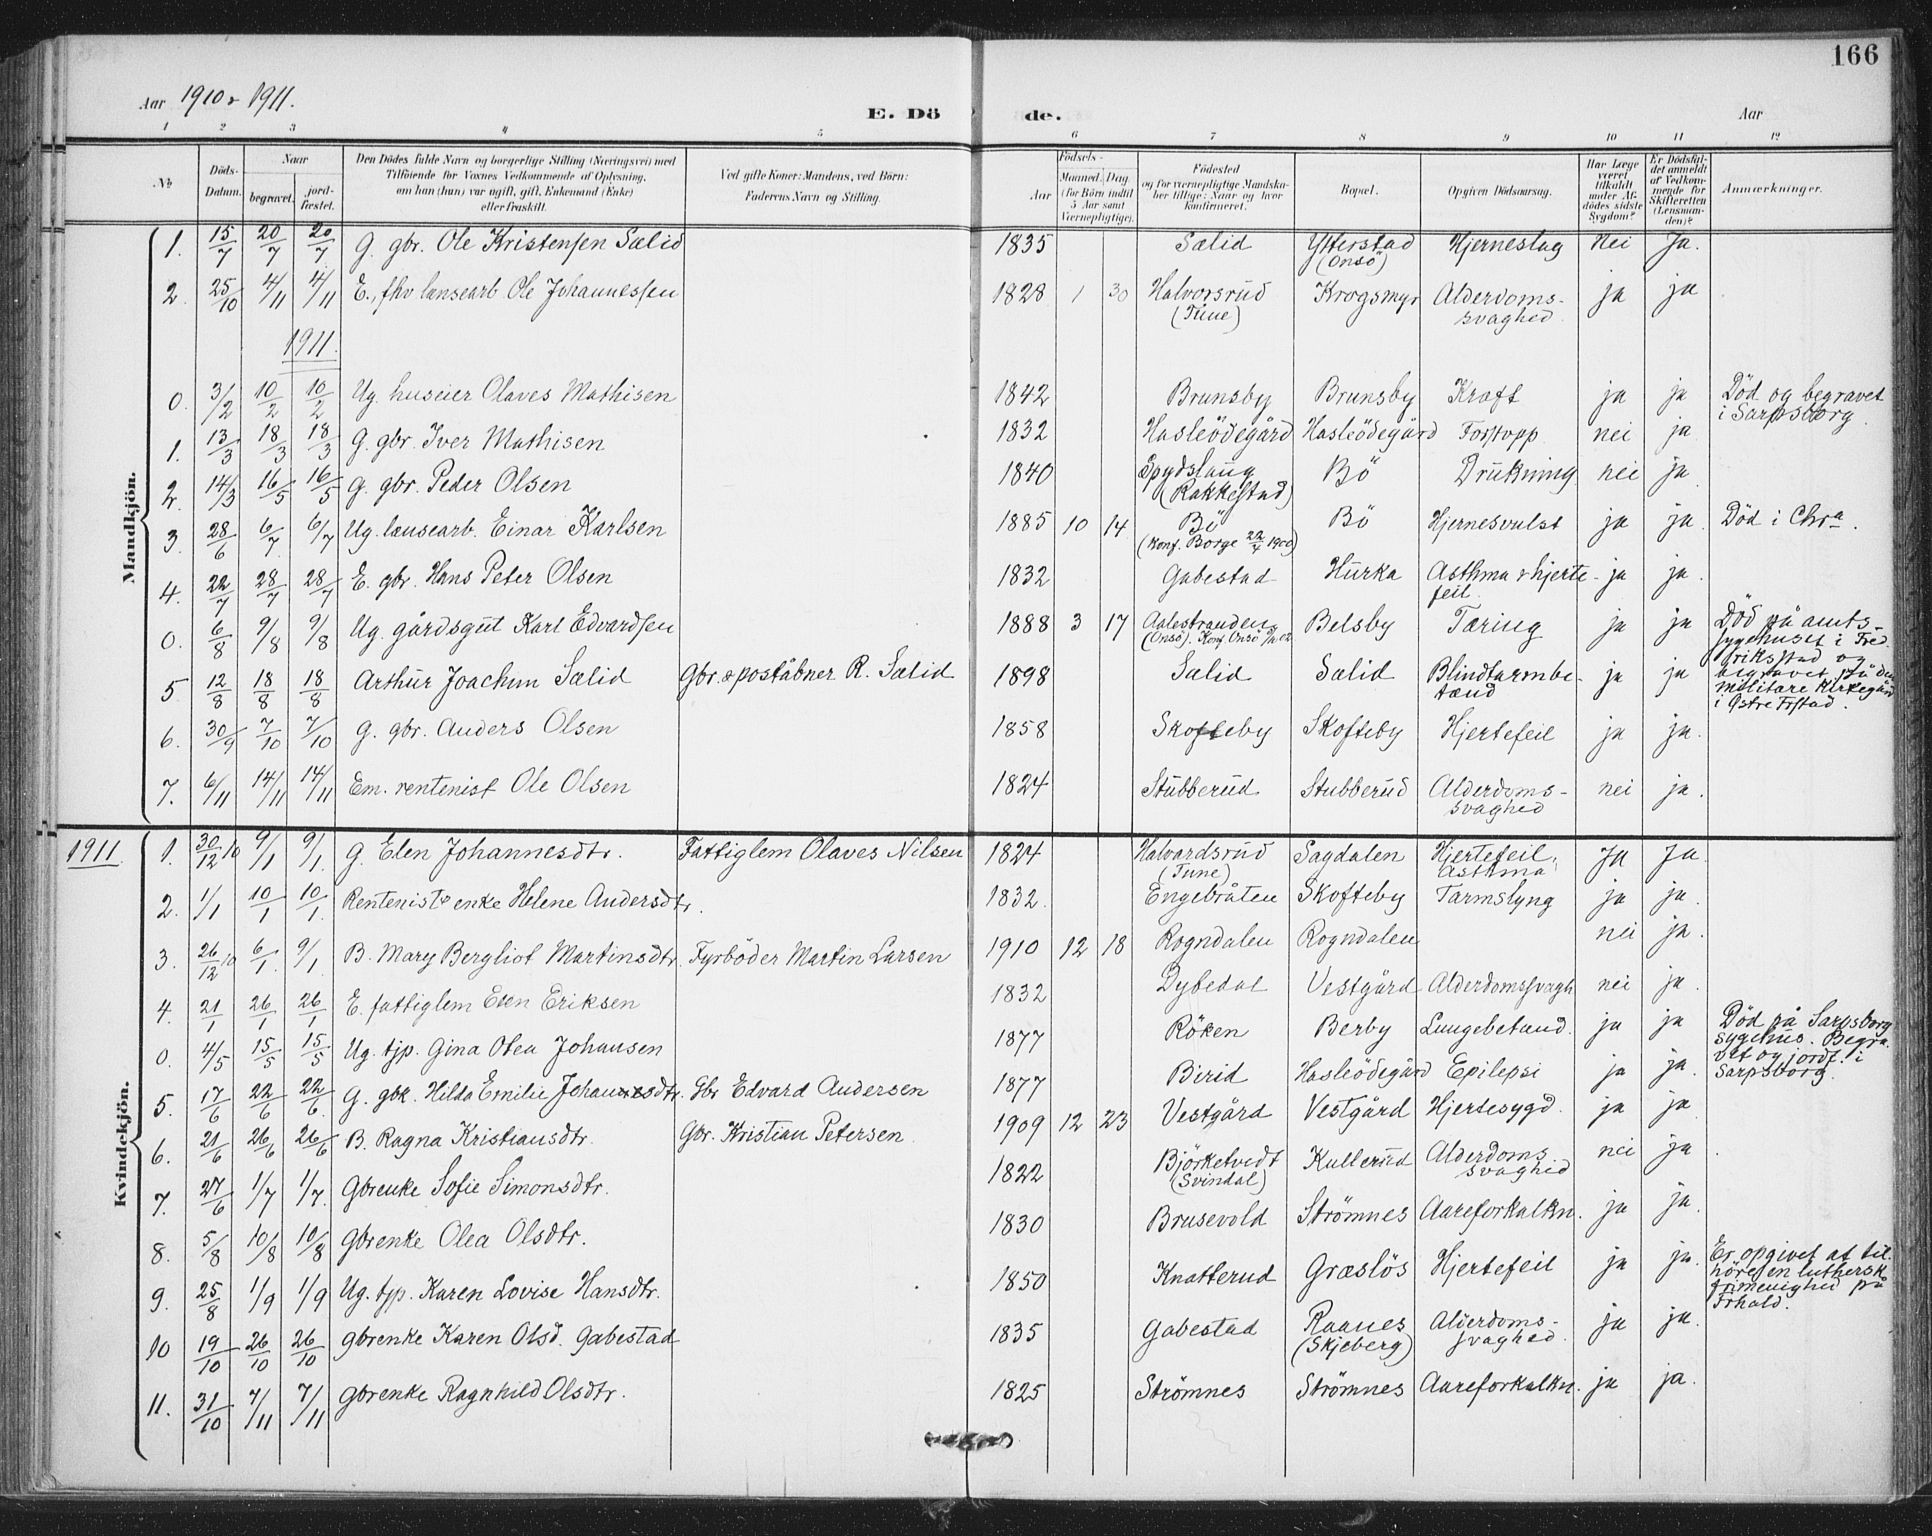 166
Aar 1910 & 1911.
E. Dö de.
Aar
1 2 3 4 5 6 7 8 9 10 11 12
№
Döds-Datum.
Naar
begravet.
jord-fæstet.
Den Dödes fulde Navn og borgerlige Stilling (Næringsvei) med
Tilföiende for Voxnes Vedkommende af Oplysning,
om han (hun) var ugift, gift, Enkemand (Enke)
eller fraskilt.
Ved gifte Koner: Mandens, ved Börn:
Faderens Navn og Stilling.
Födsels-
Aar
Maaned. Dag.
(for Börn indtil
5 Aar samt
Værnepligtige).
Födested
og for værnepligtige Mandska-
ber tillige: Naar og hvor
konfirmeret.
Bopæl.
Opgiven Dödsaarsag.
Har Læge
været
tilkaldt
under Af-
dödes sidste
Sygdom?
Er Dödsfal-
det anmeldt
af Vedkom-
mende for
Skifteretten
(Lensman-
den)?
Anmærkninger.
Mandkjön.
1. 15/7 20/7 20/7 G. gbr. Ole Kristensen Sælid 1835 Sælid Ytterstad (Onsö) Hjerneslag Nei Ja.
2. 25/10 4/11 4/11 E., fhv lænsearb Ole Johannessen 1828 1 30 Halvorsrud (Tune) Krogsmyr Alderdoms-svaghed ja ja
1911.
0. 3/2 10/2 10/2 Ug. huseier Olaves Mathisen 1842 Brunsby Brunsby Kræft ja ja Död og begravet i Sarpsborg
1. 13/3 18/3 18/3 G. gbr. Iver Mathisen 1832 Hasleödegård Hasleödegård Forstopp nei ja
2. 14/3 16/5 16/5 G. gbr. Peder Olsen 1840 Spydslaug (Rakkestad) Bö Drukning nei ja
3. 28/6 6/7 6/7 Ug. lænsearb. Einar Karlsen 1885 10 14 Bö (Konf. Borge 22/4 1900) Bö Hjernesvulst ja ja. Död i Chra.
4. 22/7 28/7 28/7 E. gbr. Hans Peter Olsen 1832 Gabestad Hurka Asthma & hjerte-feil ja ja.
0. 6/8 9/8 9/8 Ug. gårdsgut Karl Edvardsen 1888 3 17 Aalestranden (Onsö). Konf. Onsö Belsby Tæring ja ja Död på amts-sygehuset i Fred-riksstad og begravet på den militære kirkegård i Østre Frstad.
5 12/8 18/8 18/8 Arthur Joachim Sælid Gbr. & poståbner R. Sælid 1898 Sælid Sælid Blindtarmbe-tænd ja ja
6. 30/9 7/10 7/10 G. gbr. Anders Olsen 1858 Skofteby Skofteby Hjertefeil ja ja.
7. 6/11 14/11 14/11 Em. rentenist Ole Olsen 1824 Stubberud Stubberud Alderdoms-svaghed nei ja.
Kvindekjön.
1911
1. 30/12 10 9/1 9/1 G. Elen Johannesdtr. Fattiglem Olaves Nilsen 1824 Halvardsrud (Tune) Sagdalen Hjertefeil. Asthma Ja Ja.
2. 1/1 10/1 10/1 Rentenist enke Helene Andersdtr. 1832. Engebråten Skofteby Tarmslyng ja ja.
3. 26/12 10 6/1. 9/1. B. Mary Bergliot Martinsdtr. Fyrböder Martin Larsen 1910 12 18 Rogndalen Rogndalen nei ja.
4. 21/1 26/1 26/1 E. fattiglem Elen Eriksen 1832 Dybedal Vestgård Alderdomssvagh nei ja.
0. 4/5 15/5 15/5 Ug. tjp. Gina Olea Johansen 1877 Röken Berby Lungebetænd. ja ja Död på Sarpsborg sygehus. Begra-vet og jordf. i Sarpsborg.
5. 17/6 22/6 22/6. G. gbk. Hilda Emilie Johannesdtr. Gbr Edvard Andersen 1877 Birid Hasleödegård Epilepsi ja ja.
6. 21/6 26/6 26/6 B. Ragna Kristiansdtr. Gbr. Kristian Petersen 1909 12 23 Vestgård Vestgård Hjertesygd. ja ja
7. 27/6 1/7 1/7. Gbrenke Sofie Simonsdtr. 1822 Björketvedt (Svindal) Kullerud Alderdoms svaghed nei ja
8. 5/8 10/8 10/8 Gbrenke Olea Olsdtr. 1830 Brusevold Strömnes Aareforkalkn. ja ja.
9. 25/8 1/9 1/9 Ug. tjp. Karen Lovise Hansdtr. 1850 Knatterud Græslös Hjertefeil ja ja. Er opgivet at til-höre en luthersk frimenighed på Frhald.
10 19/10 26/10 26/10 Gbrenke Karen Olsd. Gabestad 1835 Gabestad Raanes (Skjeberg) Alderdoms-svaghed. ja ja.
11. 31/10 7/11 7/11 Gbrenke Ragnhild Olsdtr. 1825 Strömnes Strömnes Aareforkalkn. ja ja.